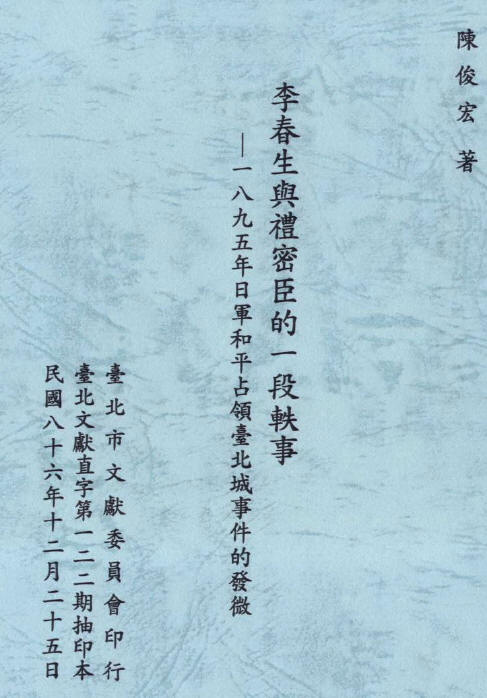 陳俊宏 著
李春生與禮密臣的一段軼事
—一八九五年日軍和平占領臺北城事件的發微
臺北市文獻委員會印行
臺北文獻直字第一二二期抽印本
民國八十六年十二月二十五日